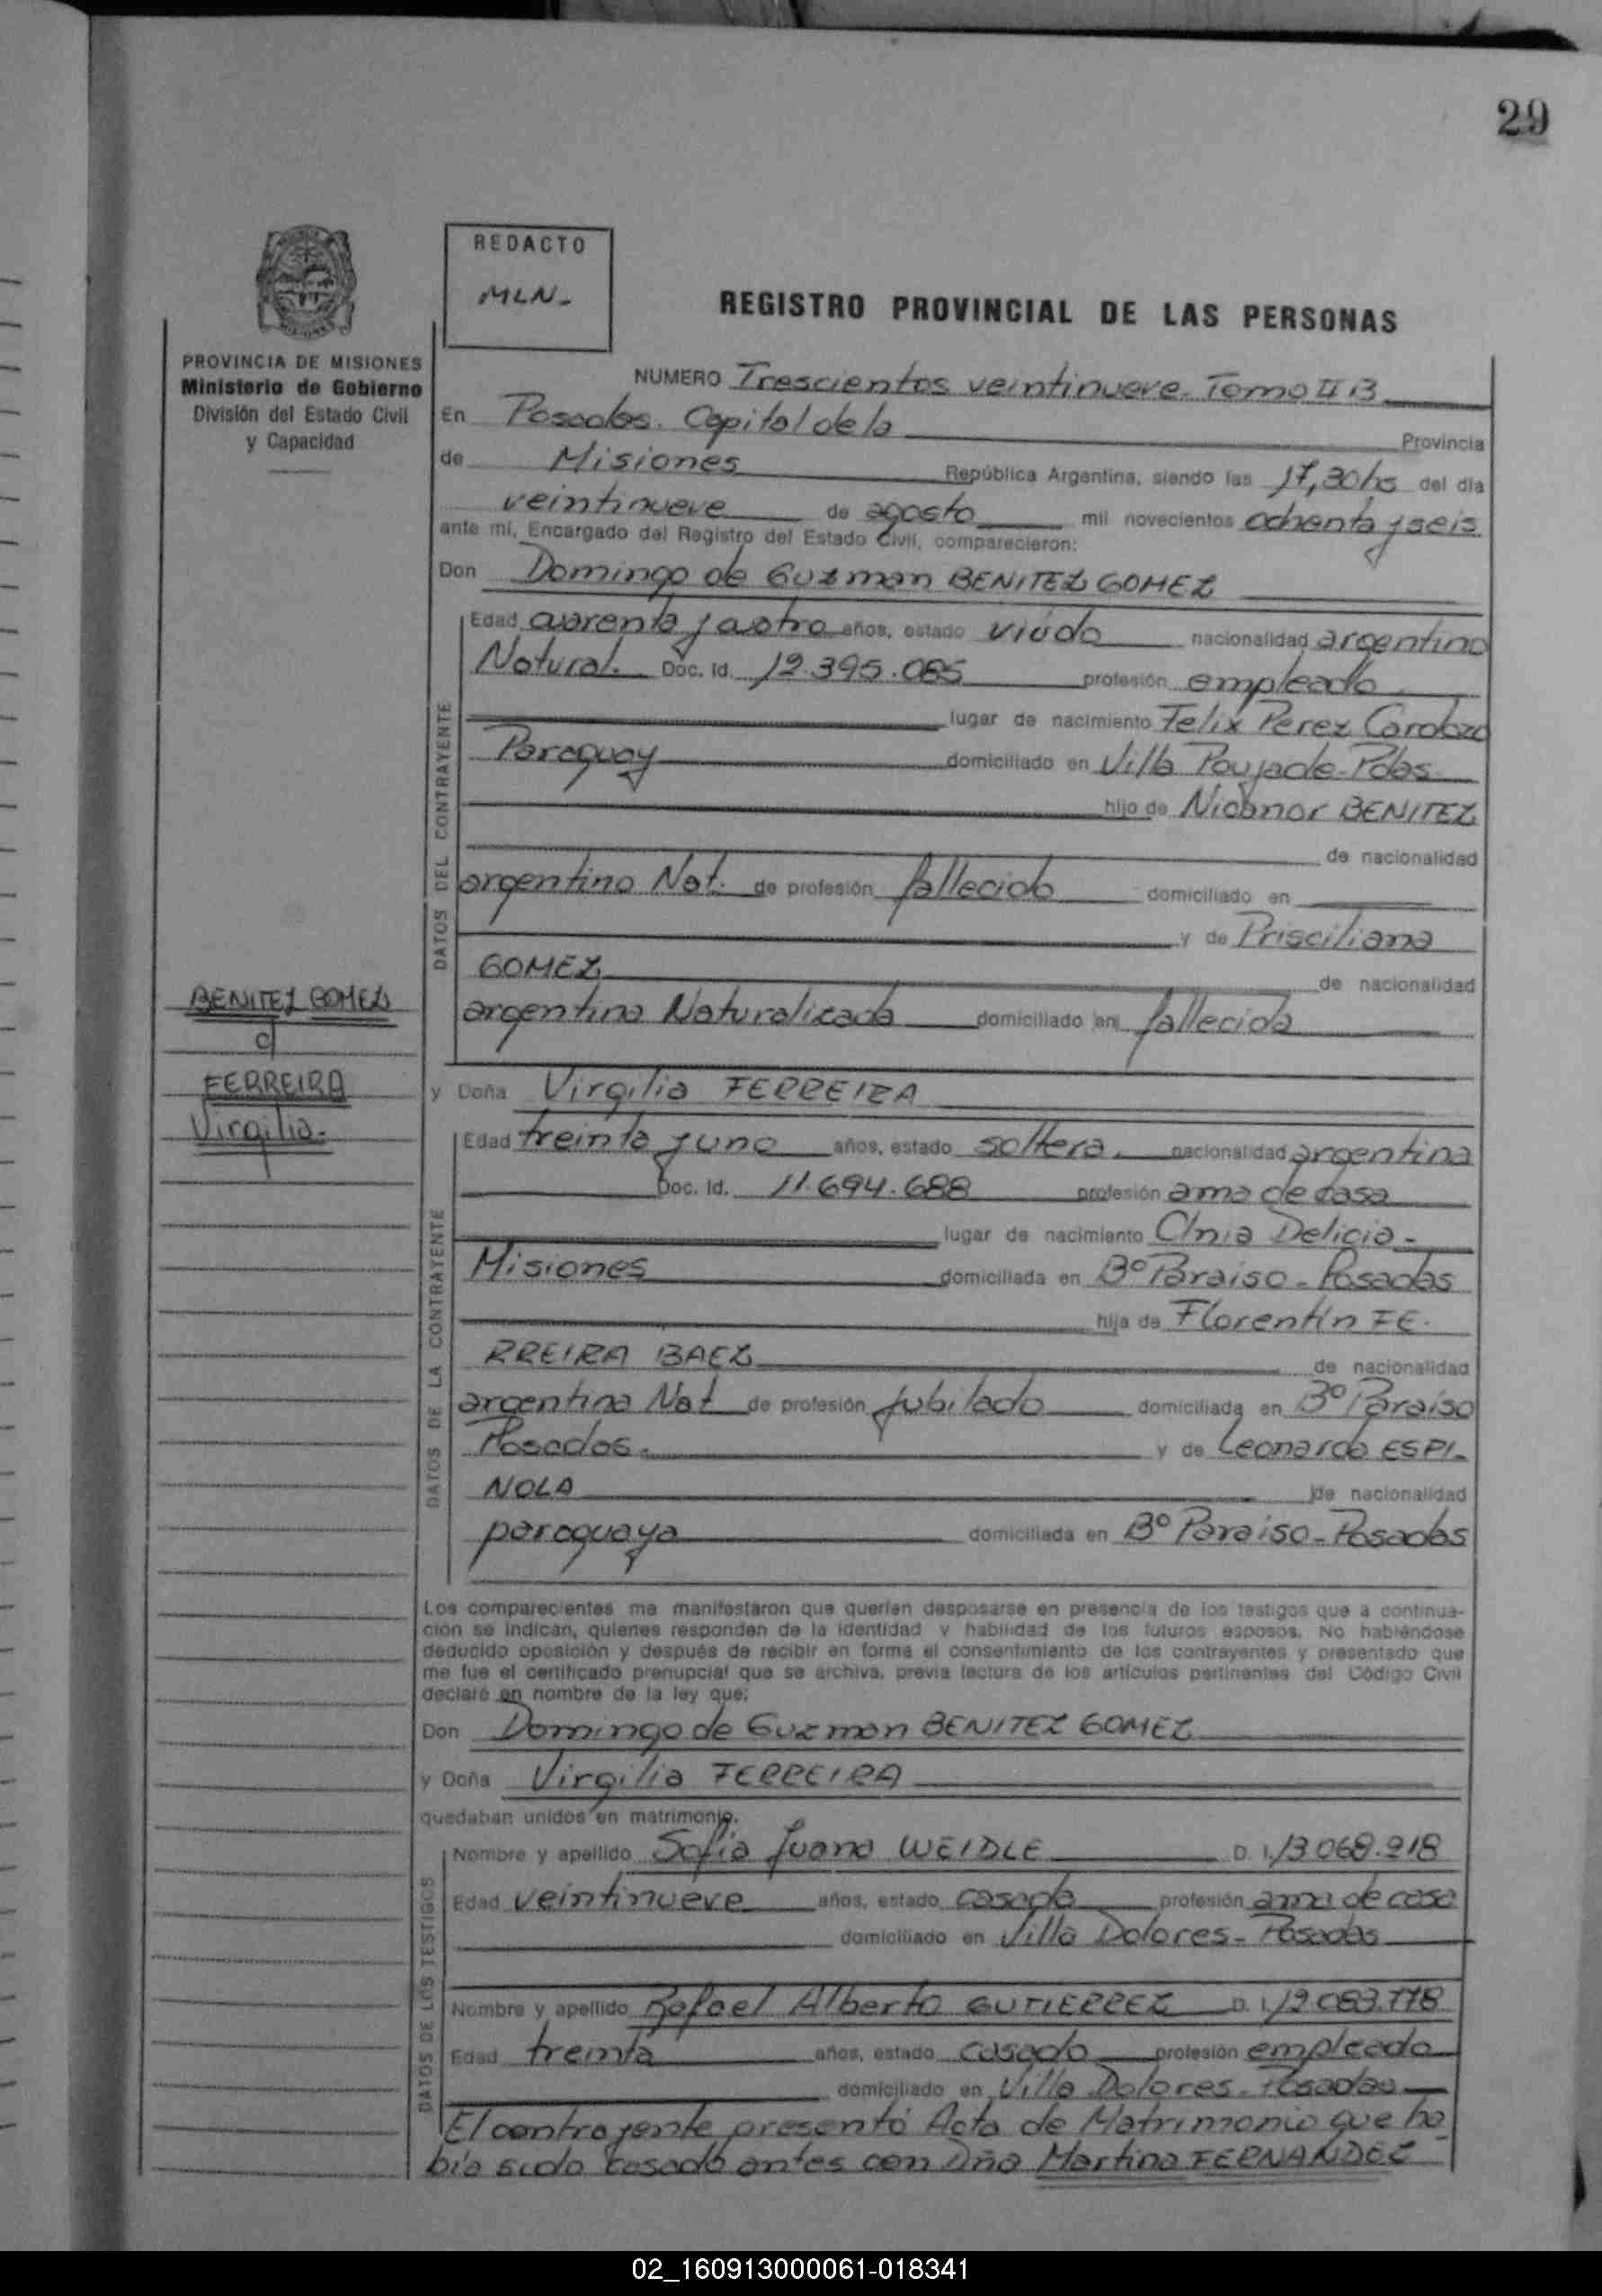 29
REDACTO
MLN-
REGISTRO PROVINCIAL DE LAS PERSONAS
PROVINCIA DE MISIONES
Ministerio de Gobierno
División del Estado Civil
y Capacidad
NUMERO Trescientos veintinueve- Tomo II B
En Posadas. Capital de la Provincia
de Misiones República Argentina, siendo las 17,30hs del día
veintinueve de agosto mil novecientos ochenta y seis
ante mí, Encargado del Registro del Estado Civil, comparecieron:
Don Domingo de Guzman BENITEZ GOMEZ
DATOS DEL CONTRAYENTE
Edad cuarenta y cuatro años, estado viudo nacionalidad argentino
Natural. Doc. Id. 12.395.085 profesión empleado
lugar de nacimiento Felix Perez Cardozo
Paraguay domiciliado en Villa Poujade-Pdas
hijo de Nicanor BENITEZ
de nacionalidad
argentino Nat. de profesión fallecido domiciliado en
y de Prisciliana
GOMEZ de nacionalidad
argentina Naturalizada domiciliado en fallecida
BENITEZ GOMEZ
c/
FERREIRA
Virgilia-
y Doña Virgilia FERREIRA
DATOS DE LA CONTRAYENTE
Edad treinta y uno años, estado soltera. nacionalidad argentina
Doc. Id. 11.694.688 profesión ama de casa
lugar de nacimiento Clnia Delicia-
Misiones domiciliada en B° Paraiso - Posadas
hija de Florentín FE-
RREIRA BAEZ de nacionalidad
argentina Nat de profesión jubilado domiciliada en B° Paraíso
Posadas. y de Leonarda ESPI-
NOLA de nacionalidad
paraguaya domiciliada en B° Paraiso-Posadas
Los comparecientes me manifestaron que querían desposarse en presencia de los testigos que a continua-
ción se indican, quienes responden de la identidad y habilidad de los futuros esposos. No habiéndose
deducido oposición y después de recibir en forma el consentimiento de los contrayentes y presentado que
me fue el certificado prenupcial que se archiva, previa lectura de los artículos pertinentes del Código Civil
declaré en nombre de la ley que:
Don Domingo de Guzman BENITEZ GOMEZ
y Doña Virgilia FERREIRA
quedaban unidos en matrimonio.
DATOS DE LOS TESTIGOS
Nombre y apellido Sofía Juana WEIDLE D. I. 13.068.218
Edad veintinueve años, estado casada profesión ama de casa
domiciliado en Villa Dolores- Posadas
Nombre y apellido Rafael Alberto GUTIERREZ D. I. 12.083.778
Edad treinta años, estado casado profesión empleado
domiciliado en Villa Dolores- Posadas
El contrayente presentó Acta de Matrimonio que ha-
bía sido casado antes con Dña Martina FERNANDEZ
02_160913000061-018341